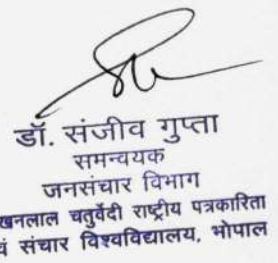 डॉ. संजीव गुप्ता
समन्वयक
जनसंचार विभाग
खनलाल चतुर्वेदी राष्ट्रीय पत्रकारिता
वं संचार विश्वविद्यालय, भोपाल